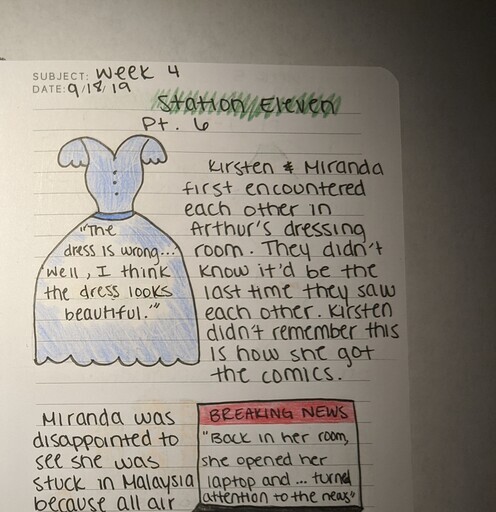 SUBJECT: Week 4
DATE: 9/18/19
Station Eleven
Pt. 6
"The
dress is wrong...
well, I think
the dress looks
beautiful.'"
Kirsten & Miranda
first encountered
each other in
Arthur's dressing
room. They didn't
know it'd be the
last time they saw
each other. Kirsten
didn't remember this
is how she got
the comics.
Miranda was
disappointed to
see she was
stuck in Malaysia
because all air
BREAKING NEWS
"Back in her room,
she opened her
laptop and ... turned
attention to the news"